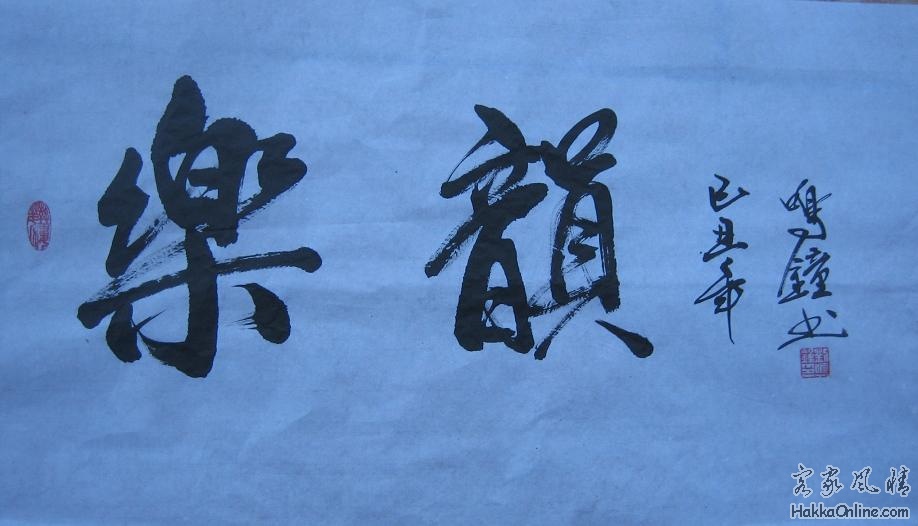 樂韻
己丑年
鳴鐘书
客家风情
HakkaOnline.com